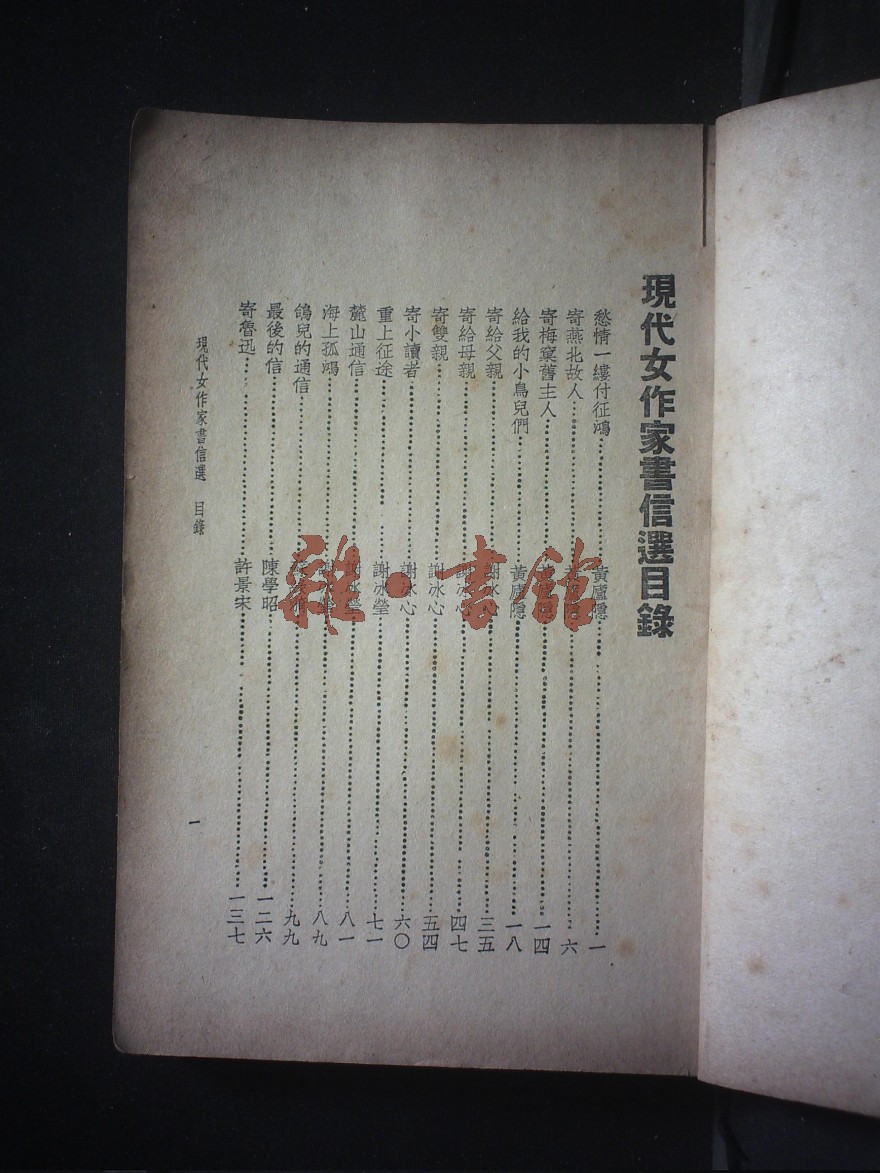 現代女作家書信選目錄
愁情一縷付征鴻……黃廬隱……一
寄燕北故人……六
寄梅窠舊主人……一四
給我的小鳥兒們……黃廬隱……一八
寄給父親……謝冰心……三五
寄給母親……謝冰心……四七
寄雙親……謝冰心……五四
寄小讀者……謝冰心……六〇
重上征途……謝冰瑩……七一
麓山通信……謝冰瑩……八一
海上孤鴻……謝冰瑩……八九
鴿兒的通信……九九
最後的信……陳學昭……一二六
寄魯迅……許景宋……一三七
現代女作家書信選 目錄 一
雜·書館